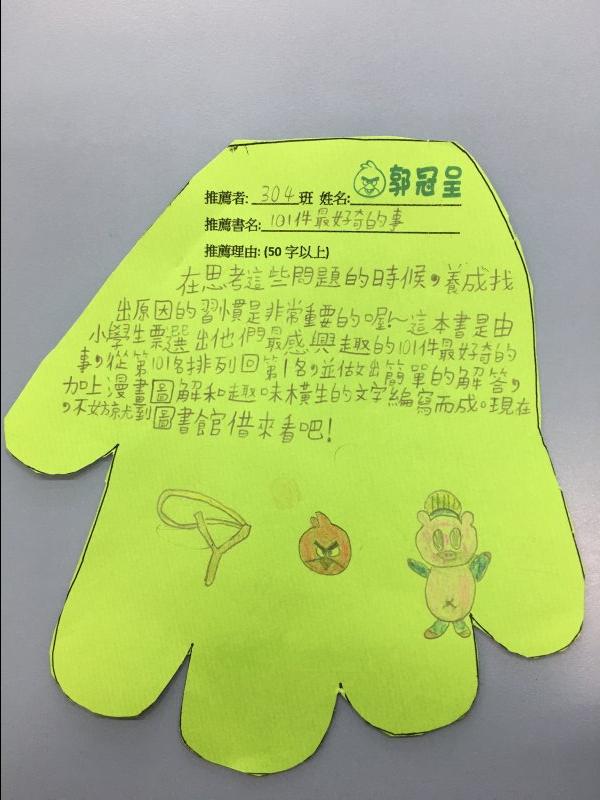 推薦者: 304班 姓名: 郭冠呈
推薦書名: 101件最好奇的事
推薦理由: (50 字以上)
在思考這些問題的時候，養成找
出原因的習慣是非常重要的喔!~這本書是由
小學生票選出他們最感興趣的101件最好奇的
事，從第101名排列回第1名，並做出簡單的解答，
加上漫畫圖解和趣味橫生的文字編寫而成。現在
，不妨就到圖書館借來看吧!